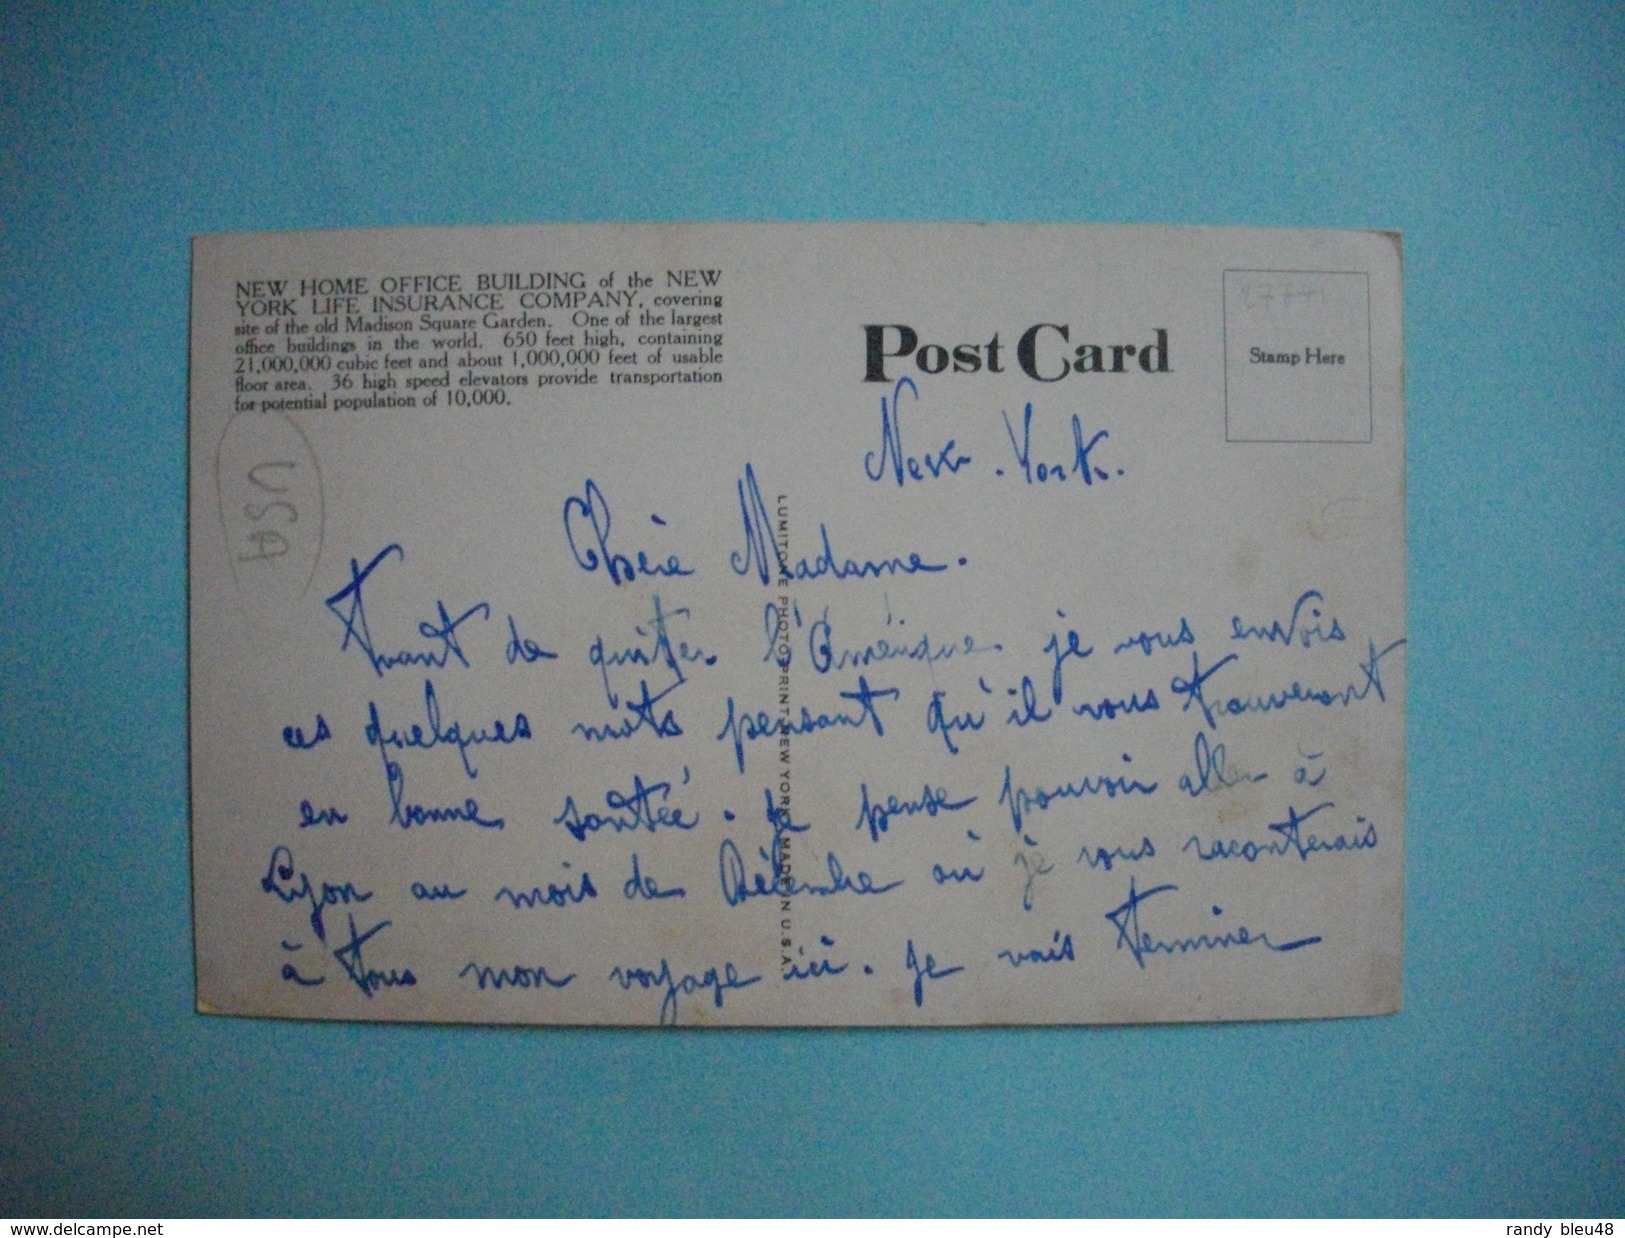 NEW HOME OFFICE BUILDING of the NEW
YORK LIFE INSURANCE COMPANY, covering
site of the old Madison Square Garden. One of the largest
office buildings in the world. 650 feet high, containing
21,000,000 cubic feet and about 1,000,000 feet of usable
floor area. 36 high speed elevators provide transportation
for potential population of 10,000.
Post Card
Stamp Here
USA
LUMITONE PHOTOPRINT NEW YORK MADE IN U.S.A.
New-York.
Chère Madame.
Avant de quitter l'Amérique je vous envois
ces quelques mots pensant qu'il vous trouveront
en bonne santée. Je pense pouvoir aller à
Lyon au mois de Décembre où je vous raconterais
à tous mon voyage ici. Je vais terminer
www.delcampe.net
randy bleu48